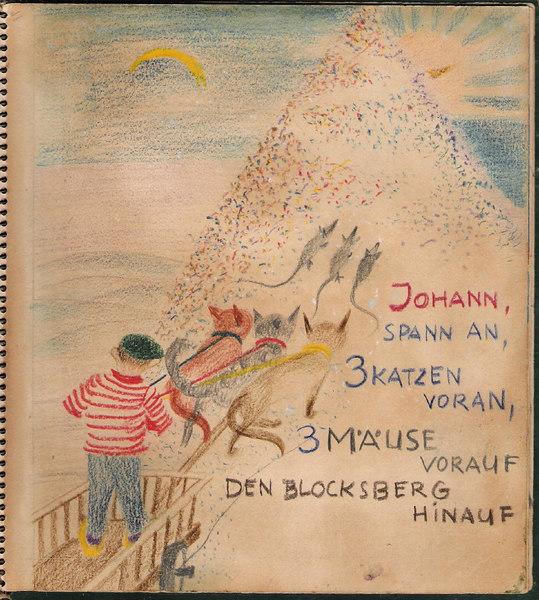 JOHANN,
SPANN AN,
3 KATZEN
VORAN,
3 MÄUSE
VORAUF
DEN BLOCKSBERG
HINAUF